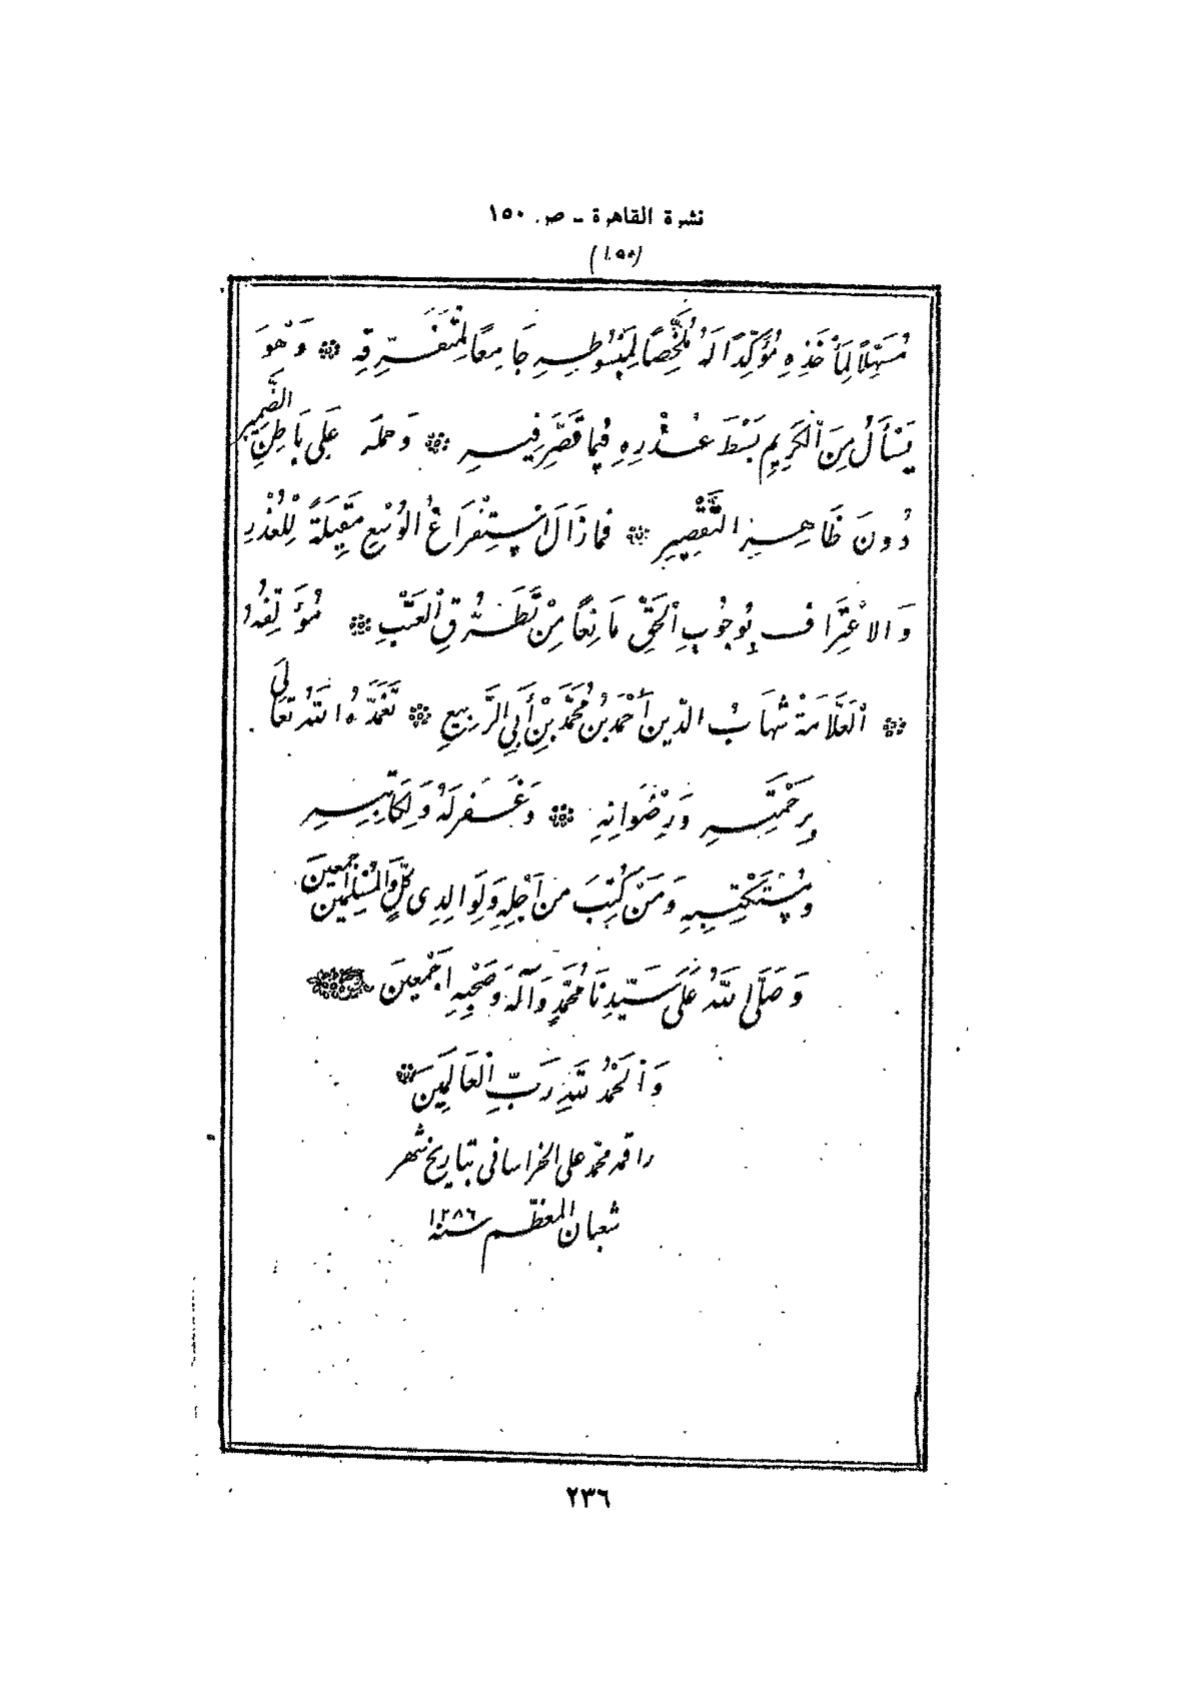 نشرة القاهرة ـ ص. ١٥٠
(١٥٠)
مُسَهِّلاً لِمَأْخَذِهِ مُؤَكِّدًا لَهُ مُلَخِّصًا لِمَبْسُوطِهِ جَامِعًا لِمُتَفَرِّقِهِ ۞ وَهُوَ
يَسْأَلُ مِنَ الْكَرِيمِ بَسْطَ عُذْرِهِ فِيمَا قَصَّرَ فِيهِ ۞ وَحَمْلَه عَلَى بَاطِنِ الضَّمِيرِ
دُونَ ظَاهِرِ التَّقْصِيرِ ۞ فَمَا زَالَ اسْتِفْرَاغُ الْوُسْعِ مَقِيلَةً لِلْعُذْرِ
وَالاعْتِرَافِ بِوُجُوبِ الْحَقِّ مَانِعًا مِنْ تَطَرُّقِ الْعَتْبِ ۞ مُؤَلِّفُهُ
۞ الْعَلَّامَةُ شِهَابُ الدِّينِ أَحْمَدُ بْنُ مُحَمَّدِ بْنِ أَبِي الرَّبِيعِ ۞ تَغَمَّدَهُ اللَّهُ تَعَالَى
بِرَحْمَتِهِ وَرِضْوَانِهِ ۞ وَغَفَرَ لَهُ وَلِكَاتِبِهِ
وَمُسْتَكْتِبِهِ وَمَنْ كُتِبَ مِنْ أَجْلِهِ وَلِوَالِدِي كُلٍّ وَالْمُسْلِمِينَ أجمعين
وَصَلَّى اللَّهُ عَلَى سَيِّدِنَا مُحَمَّدٍ وَآلِهِ وَصَحْبِهِ أَجْمَعِينَ
وَالْحَمْدُ لِلَّهِ رَبِّ الْعَالَمِينَ ۞
راقمه محمد علي الخراساني بتاريخ شهر
شعبان المعظم سنة ١٢٨٦
٢٣٦